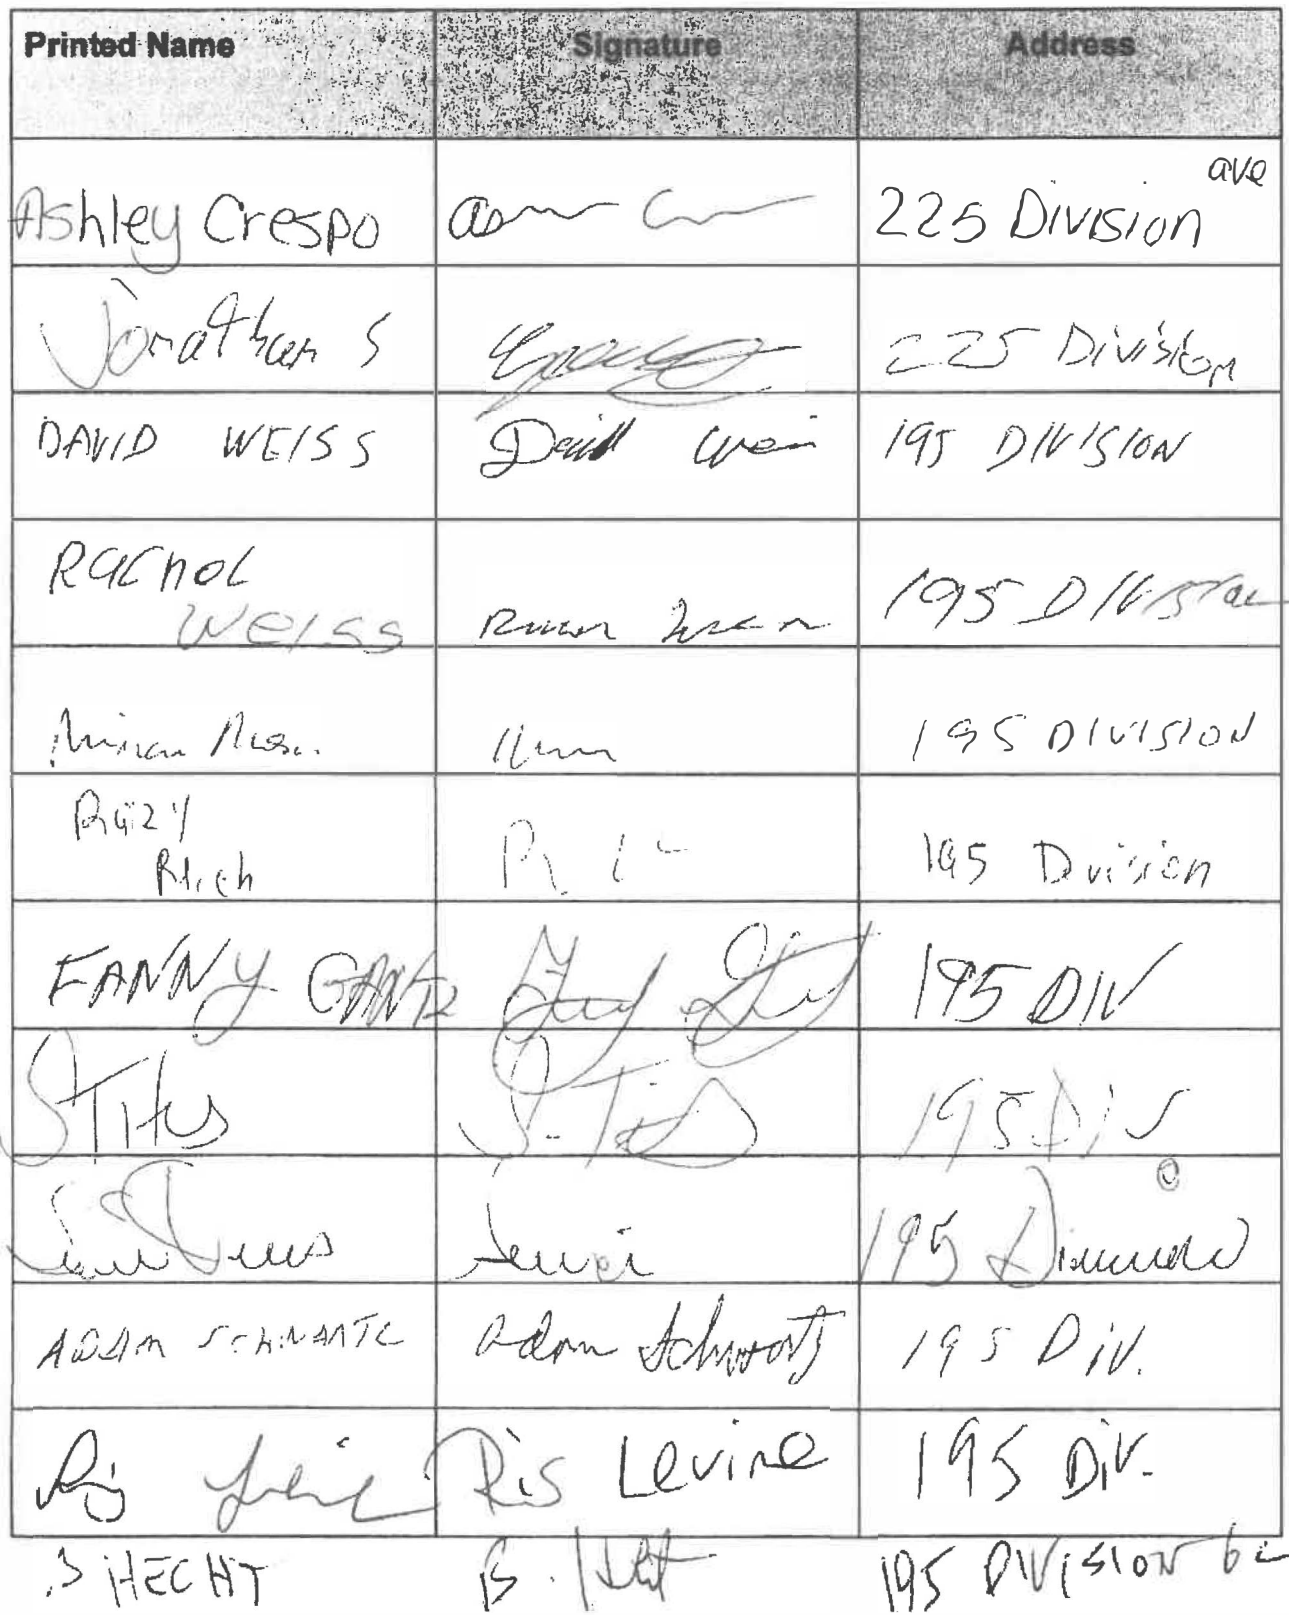 Printed Name Signature Address
Ashley Crespo 225 Division ave
Jonathan S 225 Division
DAVID WEISS David Weiss 195 DIVISION
Rachol
WEISS 195 Division
195 DIVISION
Raizy
195 Division
FANNY GANTZ 195 DIV
S Titus S. Titus 195 Div
195
ADAM SCHWARTZ Adam Schwartz 195 Div.
Ris Levine 195 Div.
B HECHT B. Hecht 195 DIVISION